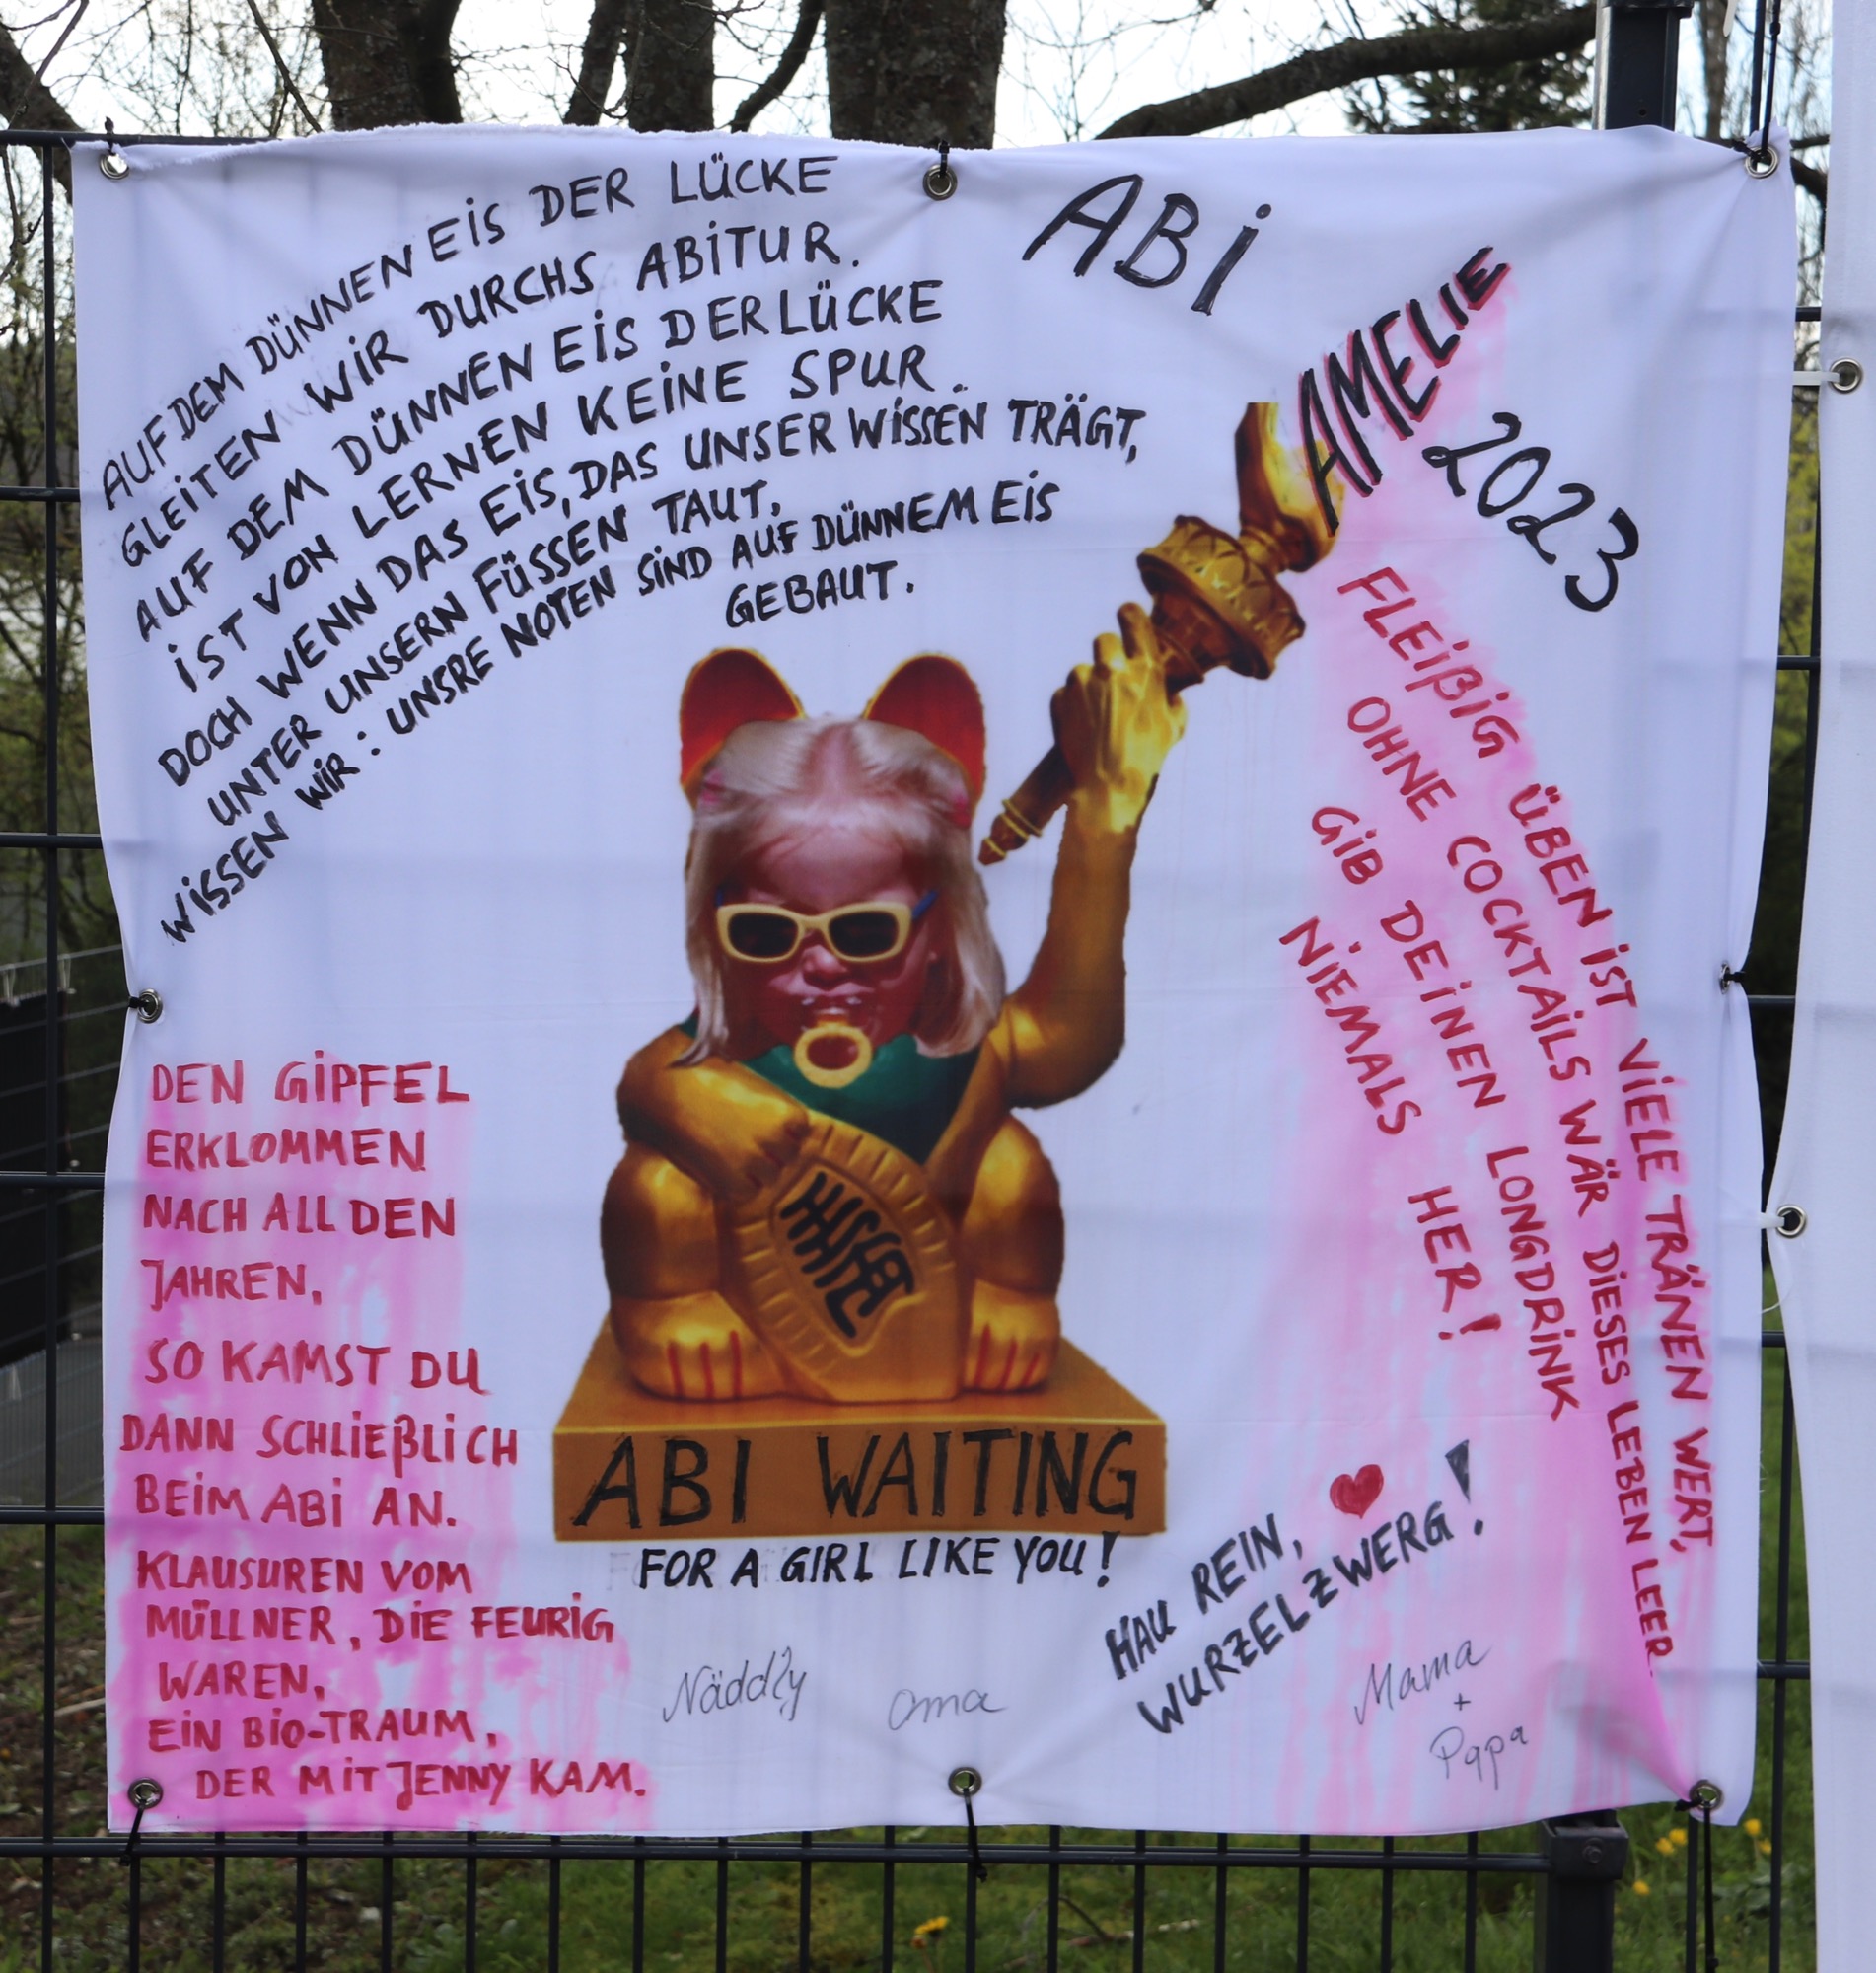 AUF DEM DÜNNEN EIS DER LÜCKE
GLEITEN WIR DURCHS ABITUR.
AUF DEM DÜNNEN EIS DER LÜCKE
IST VON LERNEN KEINE SPUR.
DOCH WENN DAS EIS, DAS UNSER WISSEN TRÄGT,
UNTER UNSERN FÜSSEN TAUT,
WISSEN WIR: UNSRE NOTEN SIND AUF DÜNNEM EIS
GEBAUT.
ABI
AMELIE
2023
FLEIßIG ÜBEN IST VIELE TRÄNEN WERT,
OHNE COCKTAILS WÄR DIESES LEBEN LEER.
GIB DEINEN LONGDRINK
NIEMALS HER!
DEN GIPFEL
ERKLOMMEN
NACH ALL DEN
JAHREN,
SO KAMST DU
DANN SCHLIEßLICH
BEIM ABI AN.
KLAUSUREN VOM
MÜLLNER, DIE FEURIG
WAREN,
EIN BIO-TRAUM,
DER MIT JENNY KAM.
ABI WAITING
FOR A GIRL LIKE YOU!
HAU REIN,
WURZELZWERG!
Oma
Mama
+
Papa